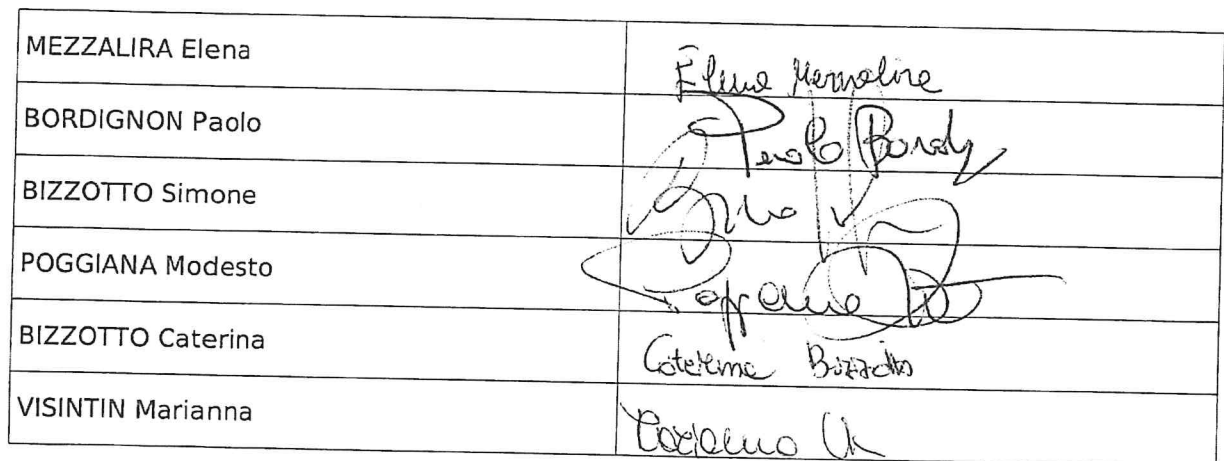 MEZZALIRA Elena Elena Mezzalira
BORDIGNON Paolo Paolo Bordi
BIZZOTTO Simone
POGGIANA Modesto
BIZZOTTO Caterina Caterina Bizzotto
VISINTIN Marianna